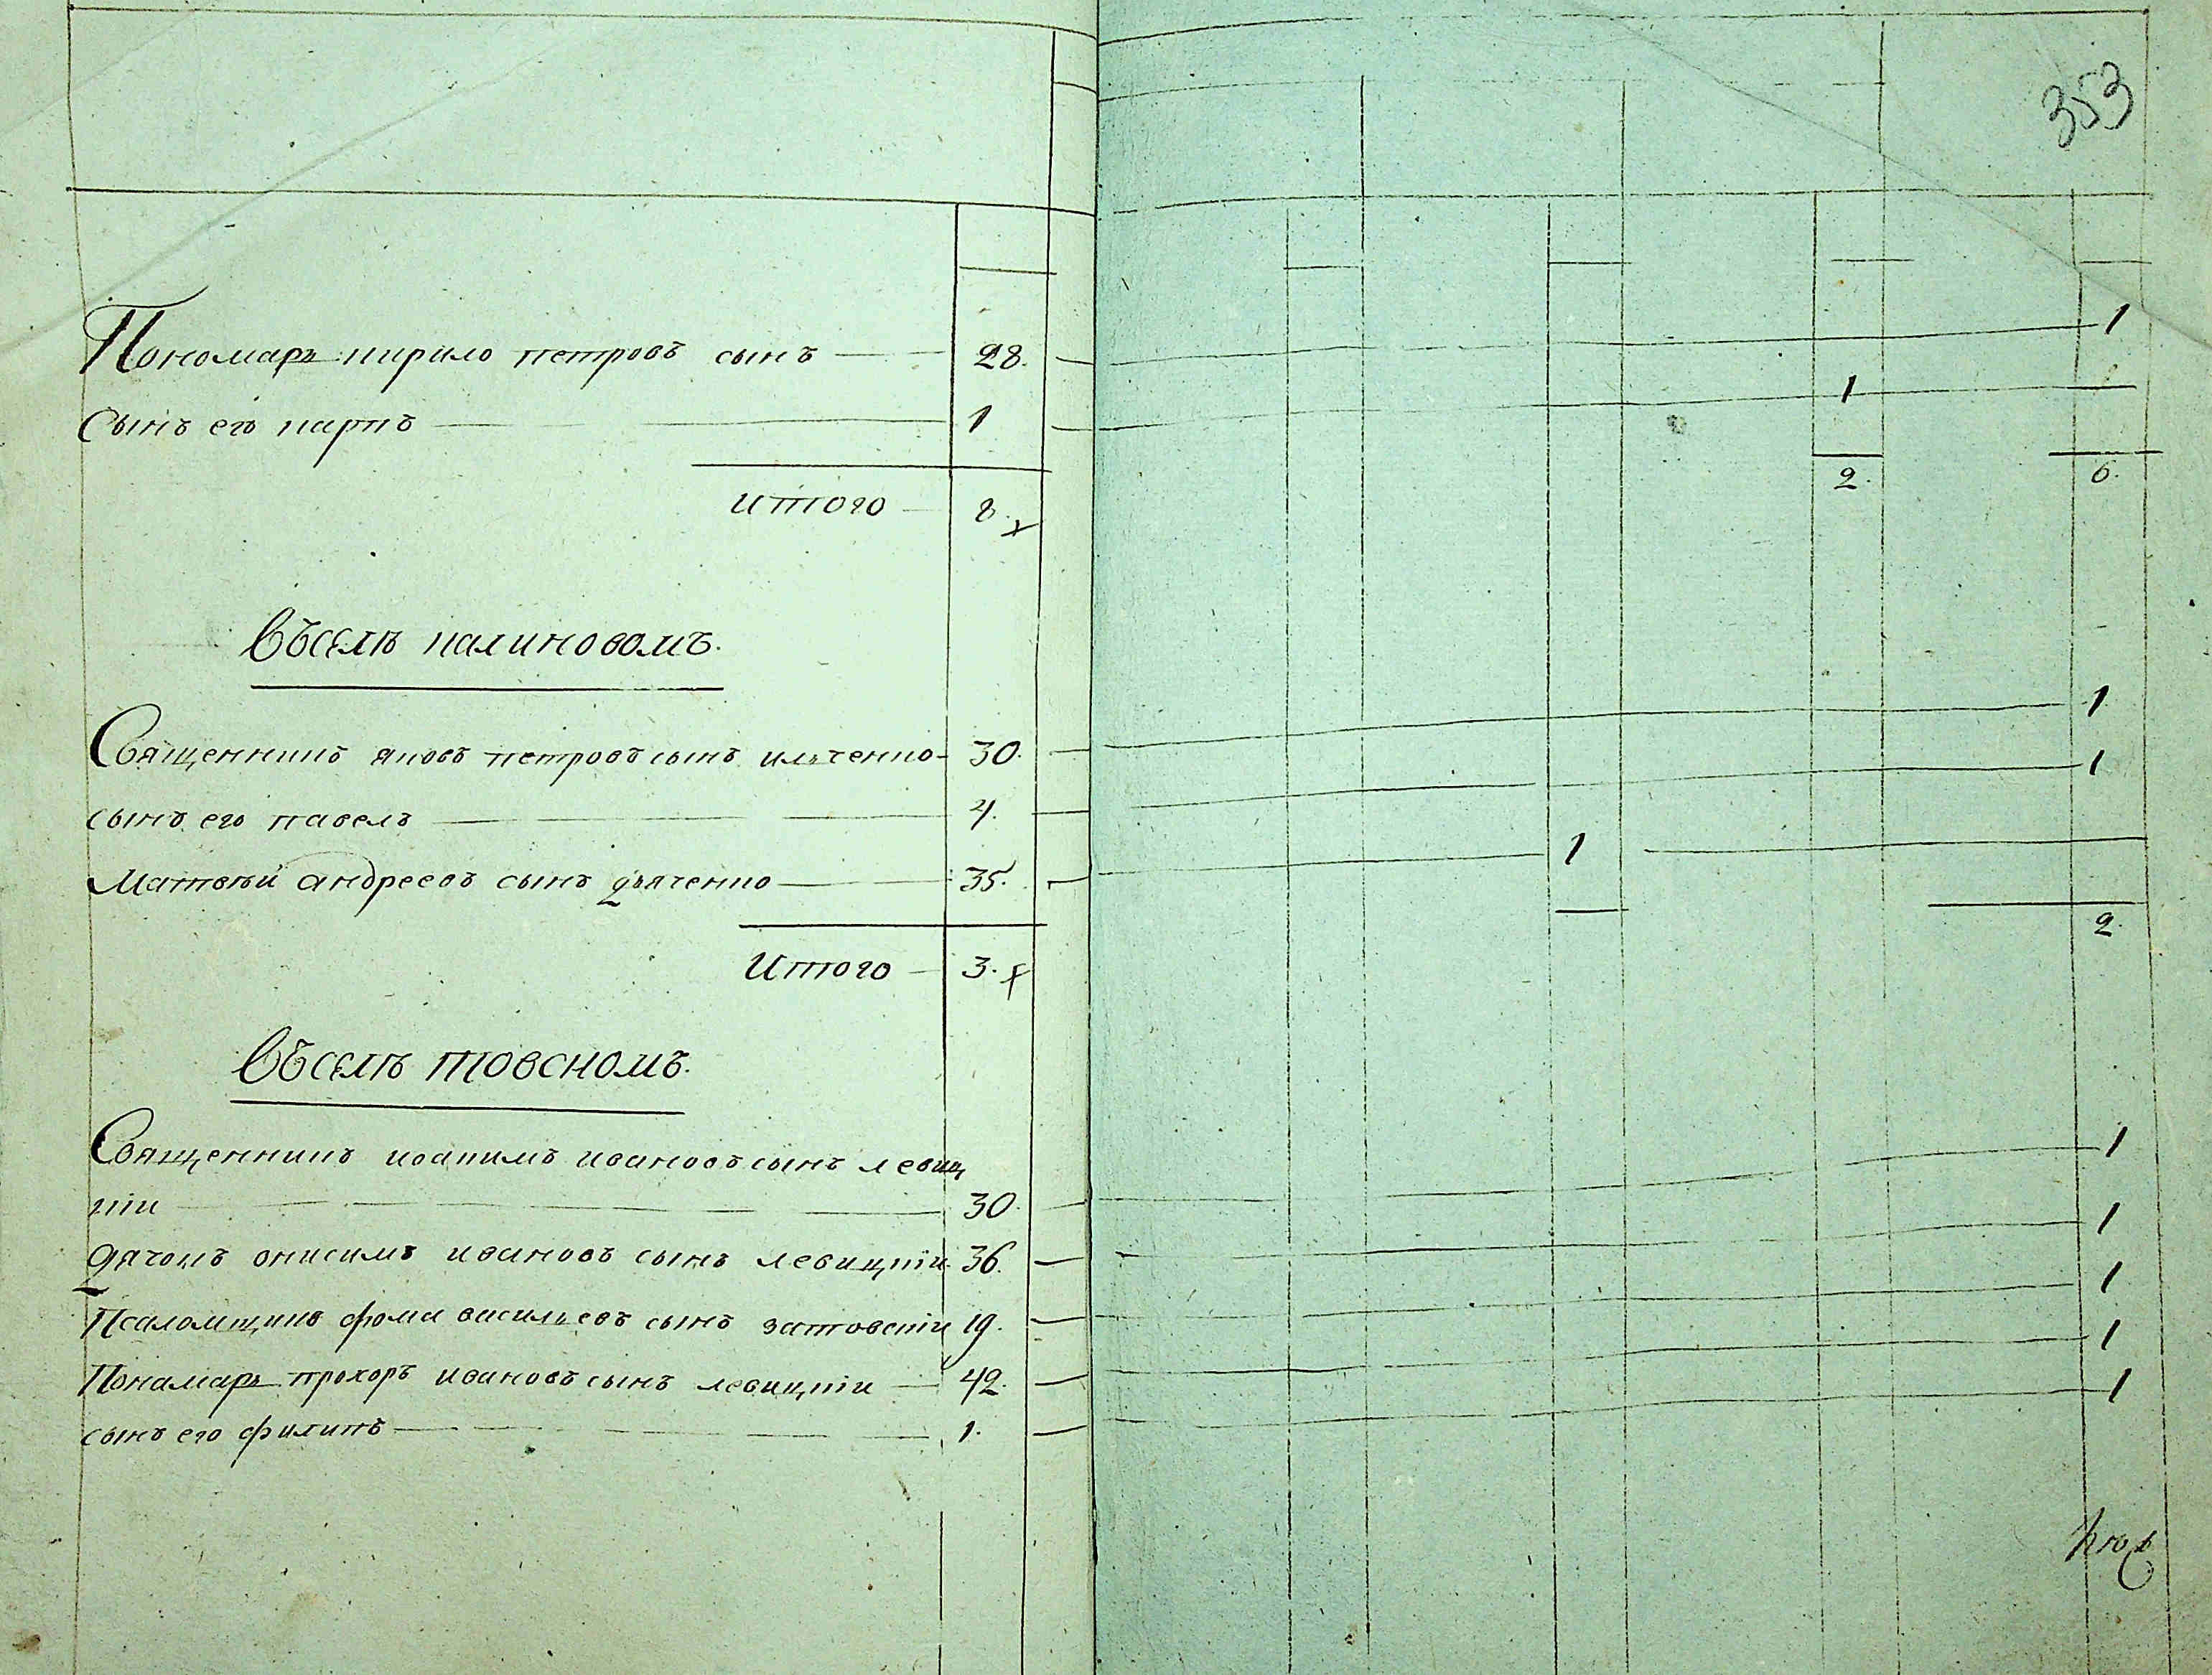 353
Пономарь кирило петровъ сынъ 28. 1
Сынъ его карпъ 1 1
итого 8. 2. 6.
Въселѣ калиновомъ.
Священникъ яковъ петровъ сынъ ильченко 30. 1
сынъ его павелъ 4. 1
Матвѣй андреевъ сынъ дьяченко 35. 1
Итого 3. 2.
Въселѣ товсномъ.
Священникъ иоакимъ ивановъ сынъ левиц
кїи 30. 1
дячокъ онисимъ ивановъ сынъ левицкїи 36. 1
Псаломщикъ фома васильевъ сынъ затовскїи 19. 1
Понамарь прохоръ ивановъ сынъ левицкїи 42. 1
сынъ его филипъ 1. 1